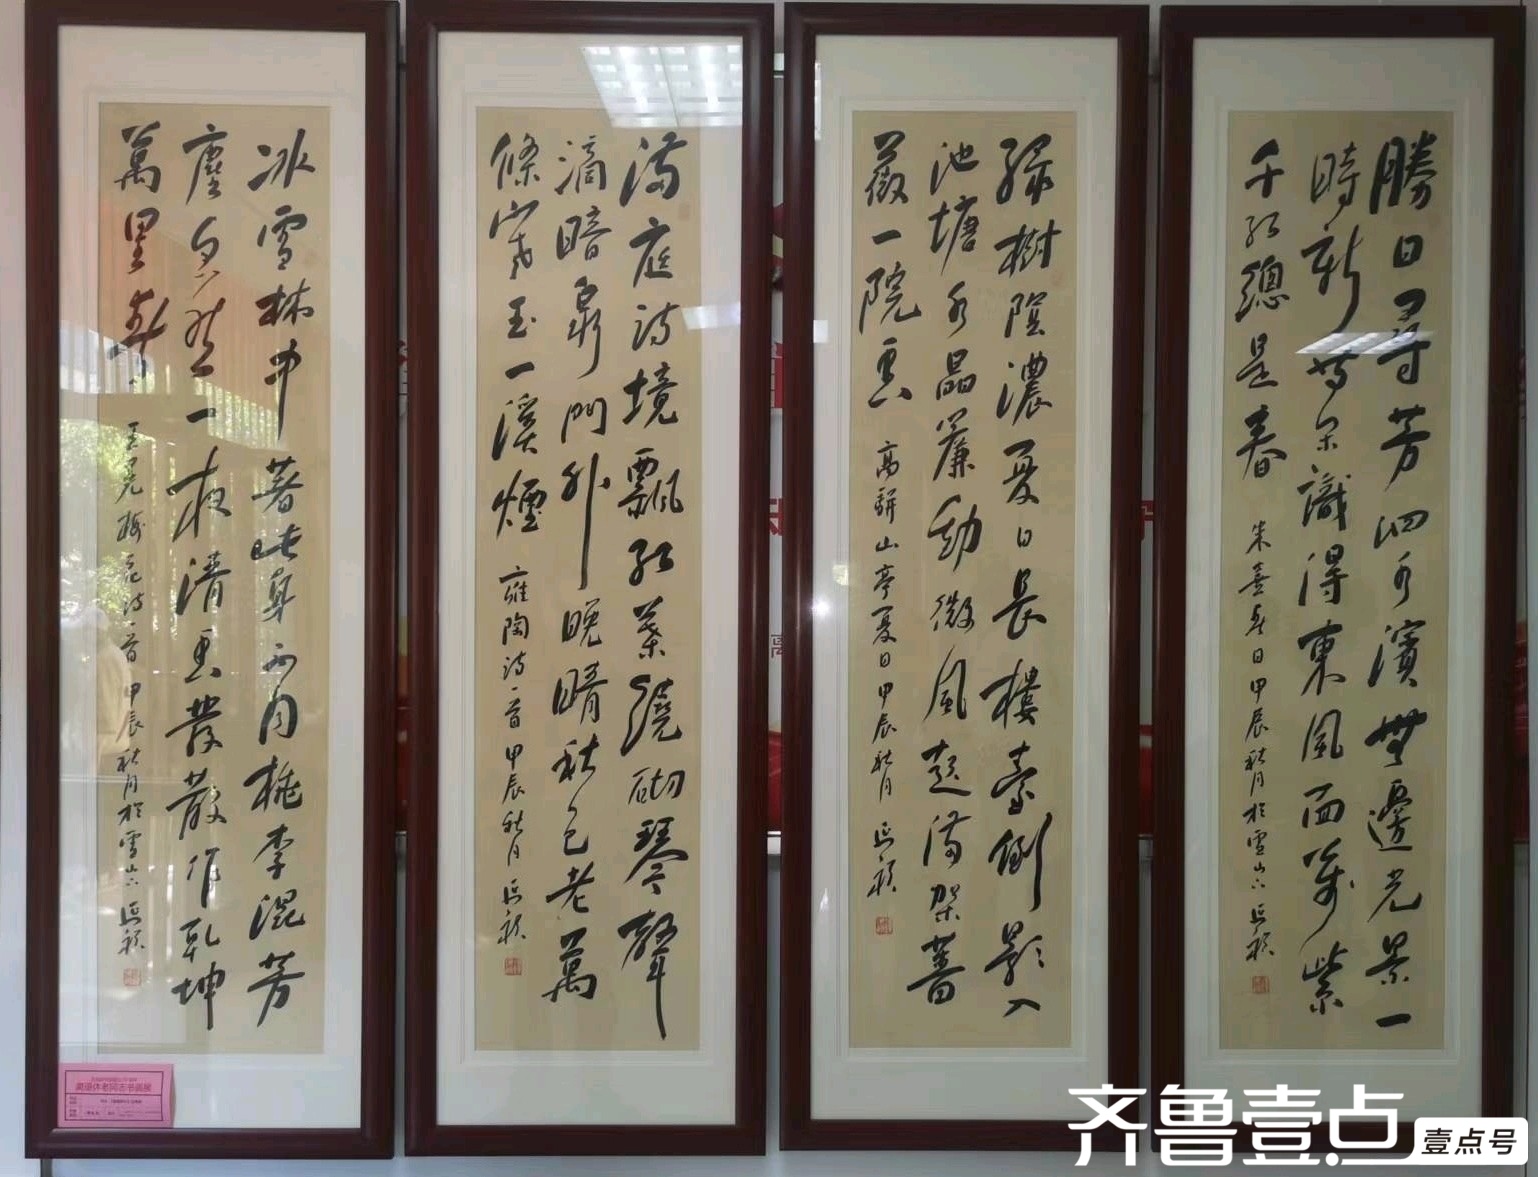 勝日尋芳泗水濱無邊光景一
時新等閑識得東風面萬紫
千紅總是春 朱熹春日甲辰秋月於雪山下
綠樹陰濃夏日長樓臺倒影入
池塘水晶簾動微風起滿架薔
薇一院香 高駢山亭夏日甲辰秋月
滿庭詩境飄紅葉繞砌琴聲
滴暗泉門外晚晴秋色老萬
條寒玉一溪煙 雍陶詩一首甲辰秋月
冰雪林中著此身不同桃李混芳
塵忽然一夜清香發散作乾坤
萬里春 王冕梅花詩一首甲辰秋月於雪山下
离退休老同志书画展
齐鲁壹点
壹点号